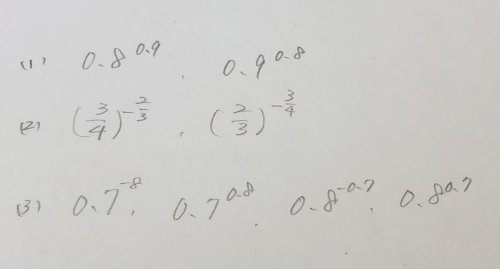 (1) 0.8^0.9 , 0.9^0.8
(2) (3/4)^-2/3 , (2/3)^-3/4
(3) 0.7^-8 , 0.7^0.8 , 0.8^-0.7 , 0.8^0.7